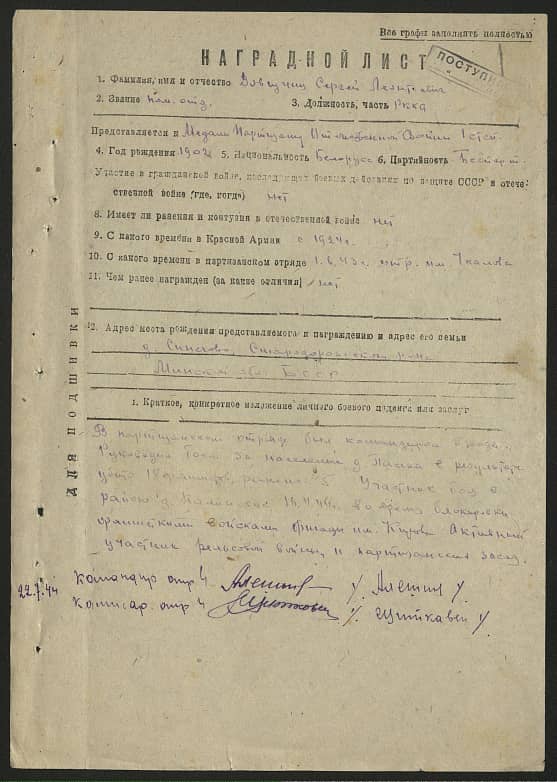 Все графы заполнять полностью
НАГРАДНОЙ ЛИСТ
ПОСТУПИ
1. Фамилия, имя и отчество Сергей
2. Звание Ком. отд. 3. Должность, часть РККА
Представляется к Медали Партизану Отечественной Войны I степ.
4. Год рождения 1902 5. Национальность Белорус 6. Партийность Беспарт.
Участие в гражданской войне, последующих боевых действиях по защите СССР и отече-
ственной войне (где, когда) нет
8. Имеет ли ранения и контузии в отечественной войне нет
9. С какого времени в Красной Армии с 1924 г.
10. С какого времени в партизанском отряде 1.6.43 г. отр. им. Чкалова
11. Чем ранее награжден (за какие отличия) нет
12. Адрес места рождения представляемого к награждению и адрес его семьи
д. Стародорожский р-н
Минской обл. БССР
1. Краткое, конкретное изложение личного боевого подвига или заслуг
В партизанском отряде был командиром взвода.
Руководил боем за населен. д. в результате
убито 18 ранено 5 Участник боя в
районе д. 44 г. во время блокировки
войсками бригады им. Кирова Активный
участник рельсовой войны и партизанских засад.
22.7.44 Командир отр Алешин /. Алешин /.
Комисар отр /. /.
ДЛЯ ПОДШИВКИ